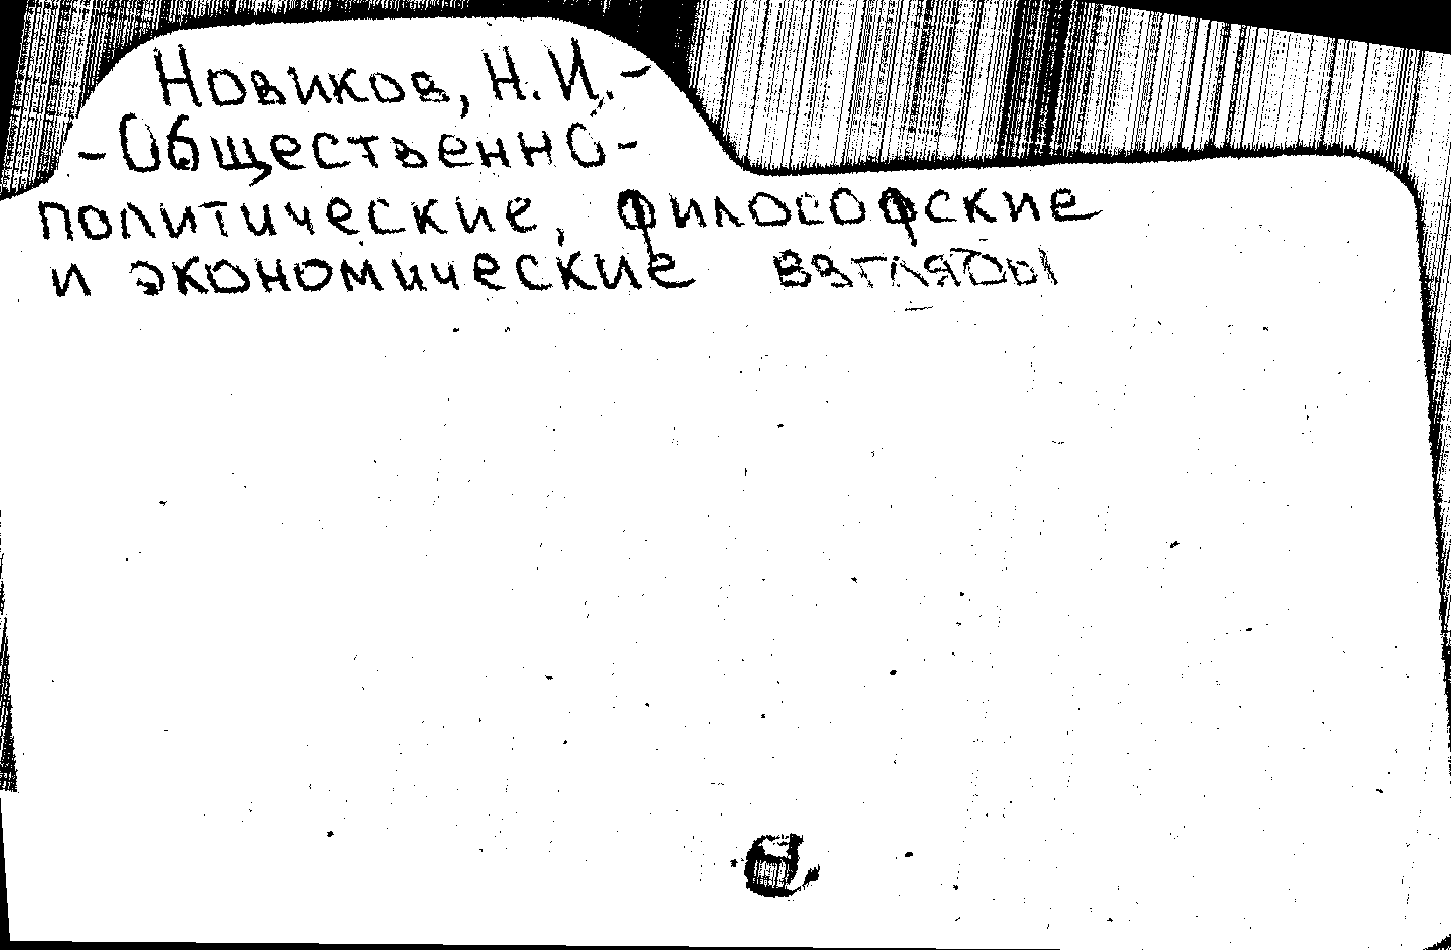 Новиков, Н.И.-
-Общественно-
политические, философские
и экономические взгляды